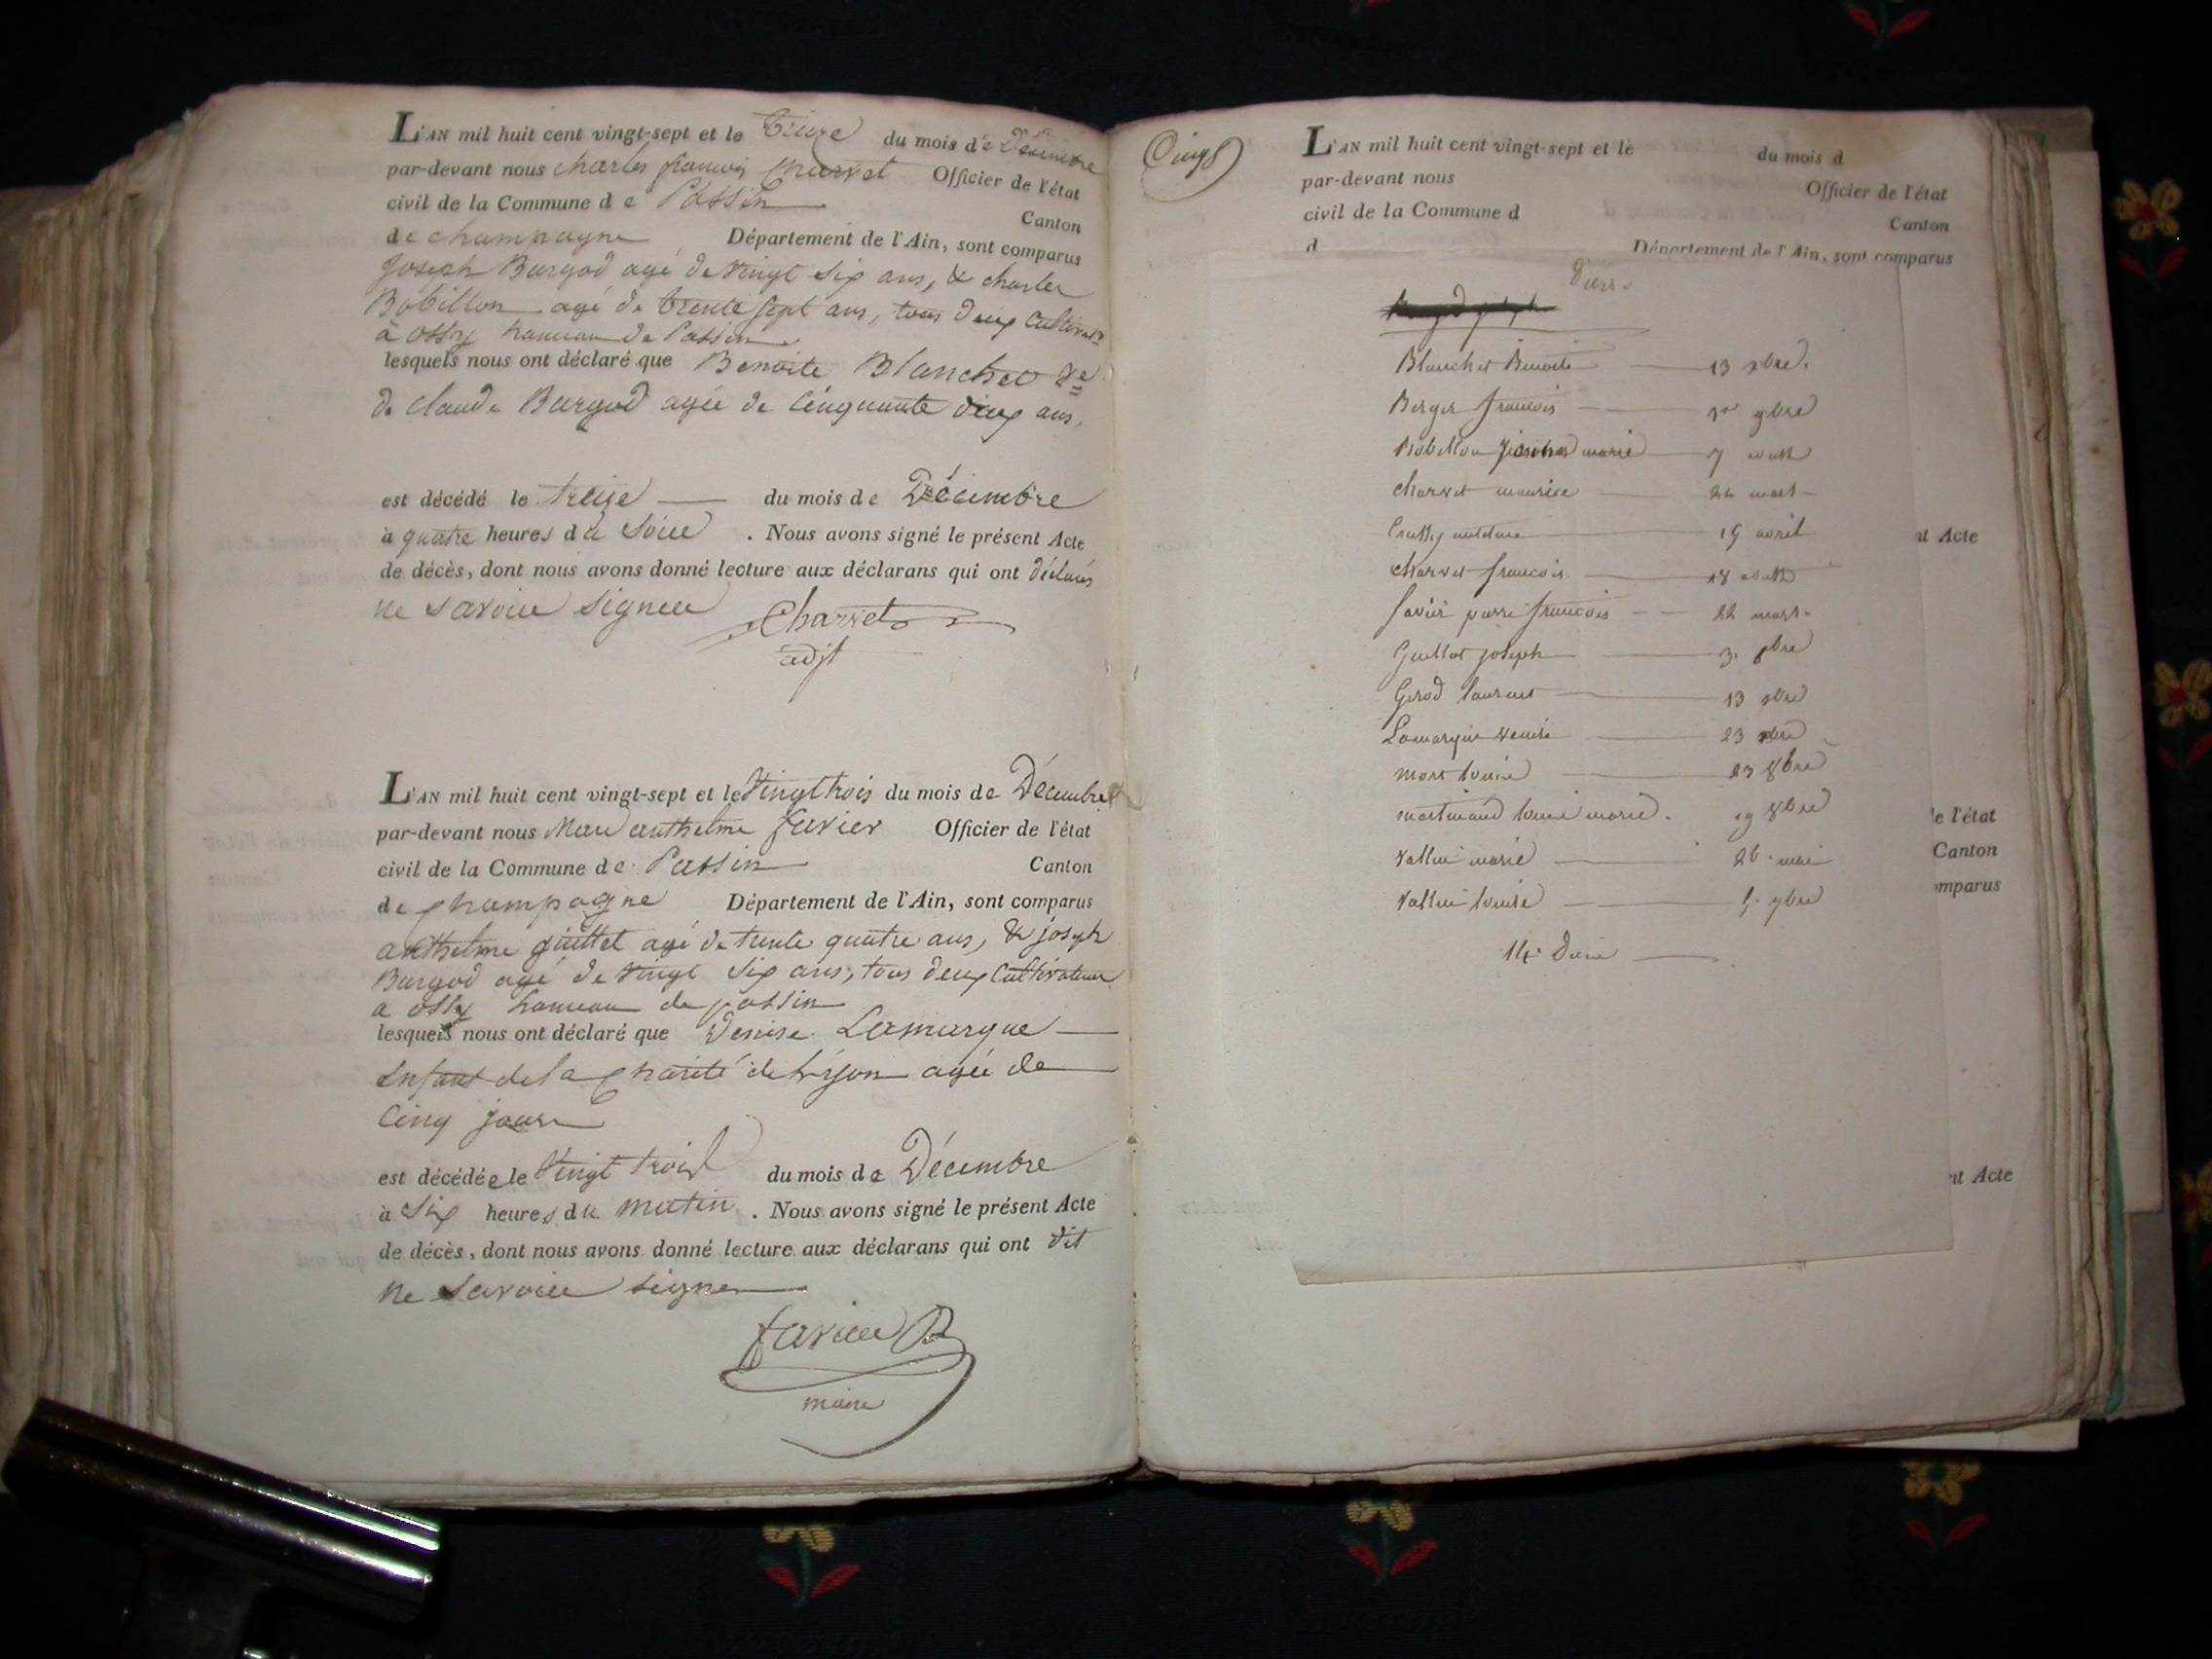 L'AN mil huit cent vingt-sept et le treize du mois de Décembre
par-devant nous charles françois charvet Officier de l'état
civil de la Commune de Passin Canton
de champagne Département de l'Ain, sont comparus
Joseph Burgod agé de vingt six ans, & charles
Bobillon agé de trente sept ans, tous deux Cultivat.rs
à ossy hameau de Passin
lesquels nous ont déclaré que Benoite Blanchet Ve
de claude Burgod agée de Cinquante deux ans.
est décédé le treize du mois de Décembre
à quatre heures du Soire . Nous avons signé le présent Acte
de décès, dont nous avons donné lecture aux déclarans qui ont déclarés
ne savoire Signer
Charvet
adjt
L'AN mil huit cent vingt-sept et le Vingt trois du mois de Décembre
par-devant nous Marc anthelme favier Officier de l'état
civil de la Commune de Passin Canton
de champagne Département de l'Ain, sont comparus
anthelme guillet agé de trente quatre ans, & joseph
Burgod agé de vingt Six ans, tous deux Cultivateur
a ossy hameau de passin
lesquels nous ont déclaré que Denise Lamarque
Enfant de la Charité de Lyon agée de
Cinq jours
est décédée le Vingt trois du mois de Décembre
à Six heures du matin . Nous avons signé le présent Acte
de décès, dont nous avons donné lecture aux déclarans qui ont dit
ne Savoire Signer
favier
maire
Cinq
L'AN mil huit cent vingt-sept et le du mois d
par-devant nous Officier de l'état
civil de la Commune d Canton
d Département de l'Ain, sont comparus
Blanchet Benoite 13 xbre.
Berger françois 1er 9bre
Bobillon marie 7 aoust
charvet maurice 22 mars
anthelme 19 avril
charvet francois 18 aoust
favier pierre françois 22 mars
Guillet joseph 3. 8bre
Gerod laurent 13 xbre
Lamarque denise 23 xbre
mort louise 23 8bre
martinand louise marie. 19 8bre
Vallin marie 26. mai
Vallin louise 5. 9bre
14. Décès
nt Acte
de l'état
Canton
omparus
nt Acte